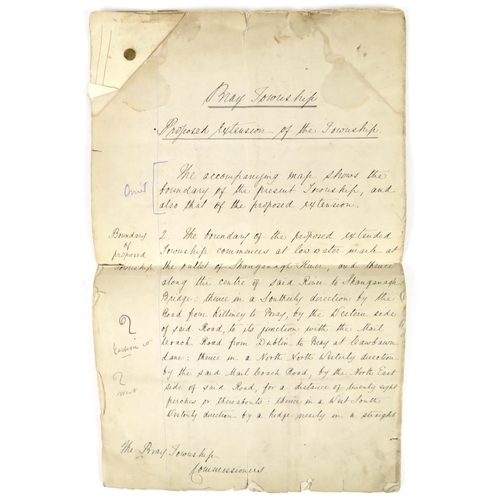 Bray Township
Proposed extension of the Township.
Omit
The accompanying map shows the
boundary of the present Township, and
also that of the proposed extension.
Boundary
of
proposed
Township
2. The boundary of the proposed extended
Township commences at low water mark at
the outlet of Shanganagh River, and thence
along the centre of said River to Shanganagh
Bridge; thence in a Southerly direction by the
Road from Killiney to Bray, by the Western side
of said Road, to its junction with the Mail
Coach Road from Dublin to Bray at
Lane; thence in a North North Westerly direction
by the said Mail Coach Road, by the North East
side of said Road, for a distance of twenty eight
perches or thereabouts; thence in a West South
Westerly direction by a hedge nearly in a straight
?
Eastern
?
West
The Bray Township
Commissioners